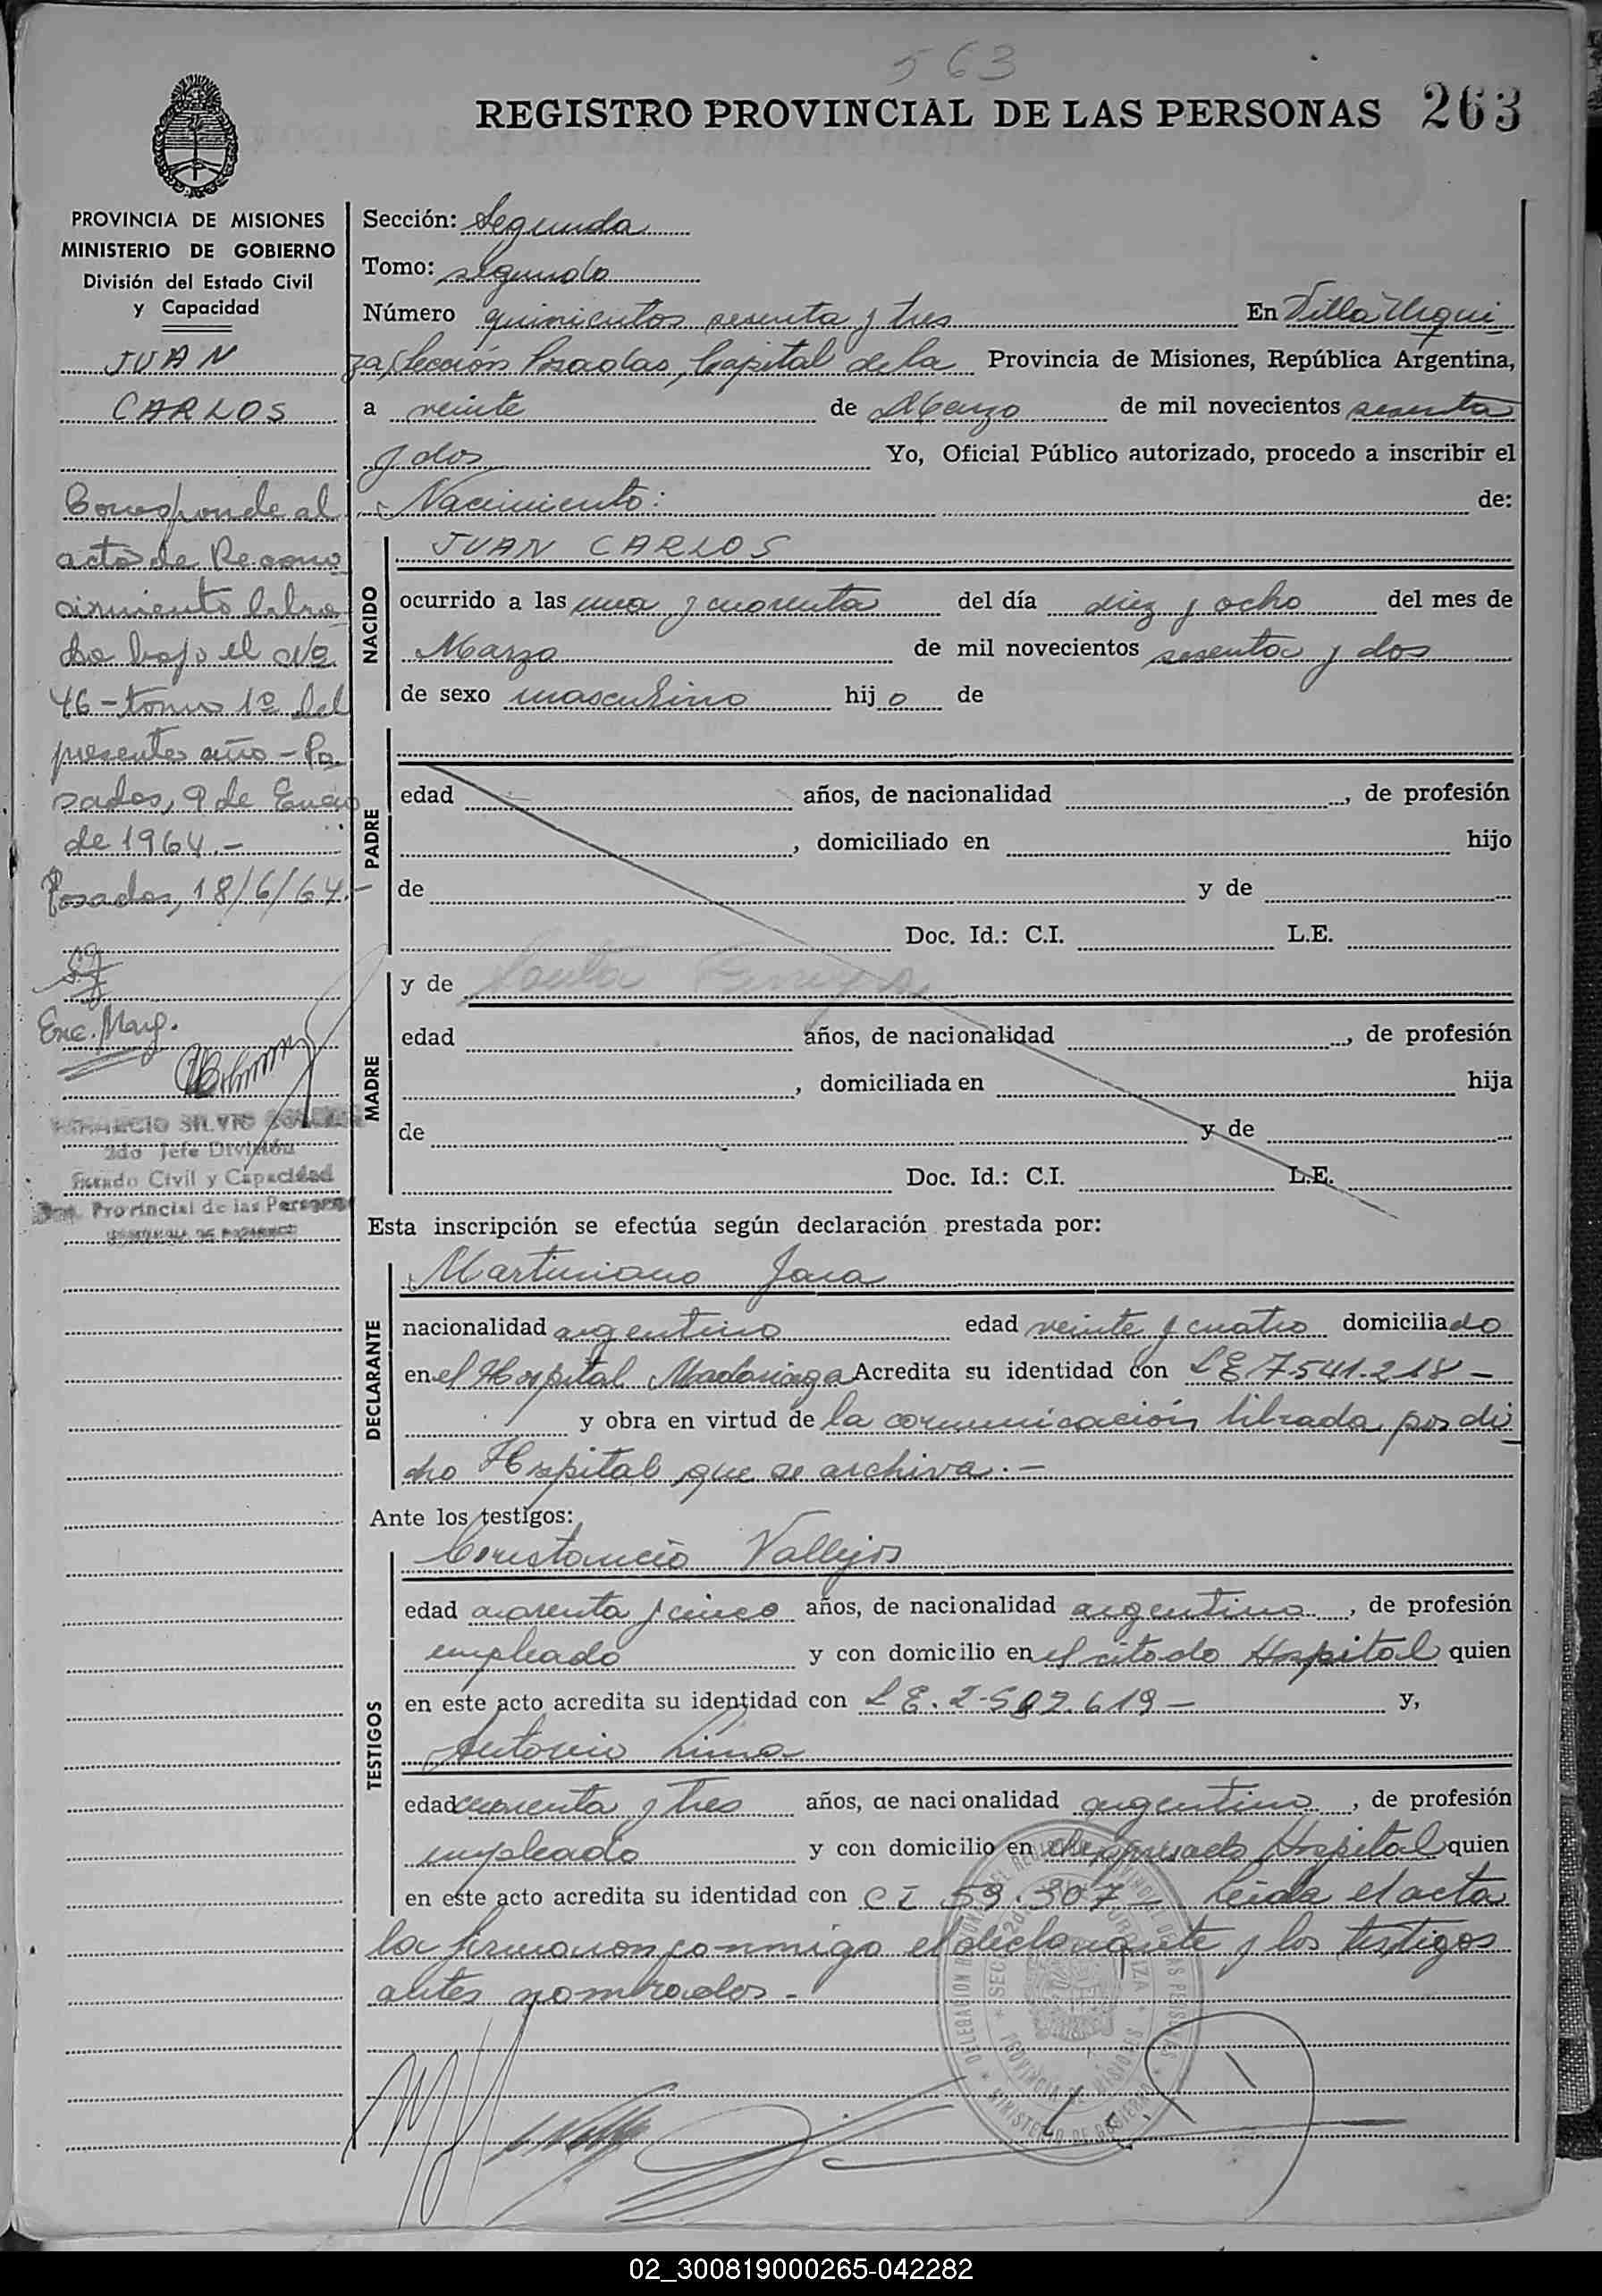 563
REGISTRO PROVINCIAL DE LAS PERSONAS 263
PROVINCIA DE MISIONES
MINISTERIO DE GOBIERNO
División del Estado Civil
y Capacidad
JUAN
CARLOS
Corresponde al
acta de Recono
cimiento labra
da bajo el Nº
46 - tomo 1º del
presente año - Po
sadas, 9 de Enero
de 1964.-
Posadas, 18/6/64.-
Enc. Marg.
SILVIO
2do Jefe División
Estado Civil y Capacidad
Provincial de las Personas
Sección: Segunda
Tomo: segundo
Número quinientos sesenta y tres En Villa Urqui
za, Sección Posadas, Capital de la Provincia de Misiones, República Argentina,
a veinte de Marzo de mil novecientos sesenta
y dos Yo, Oficial Público autorizado, procedo a inscribir el
Nacimiento: de:
NACIDO
JUAN CARLOS
ocurrido a las una y cuarenta del día diez y ocho del mes de
Marzo de mil novecientos sesenta y dos
de sexo masculino hijo de
PADRE
edad años, de nacionalidad , de profesión
, domiciliado en hijo
de y de
Doc. Id.: C.I. L.E.
y de
MADRE
edad años, de nacionalidad , de profesión
, domiciliada en hija
de y de
Doc. Id.: C.I. L.E.
Esta inscripción se efectúa según declaración prestada por:
DECLARANTE
Martiniano Jara
nacionalidad argentino edad veinte y cuatro domiciliado
en el Hospital Madariaga Acredita su identidad con L E 7.541.218 -
y obra en virtud de la comunicación librada por di
cho Hospital que se archiva.-
Ante los testigos:
TESTIGOS
Constancio Vallejos
edad cuarenta y cinco años, de nacionalidad argentino , de profesión
empleado y con domicilio en el citado Hospital quien
en este acto acredita su identidad con L E. 2.582.619 - y,
Antonio Lima
edad cuarenta y tres años, de nacionalidad argentino , de profesión
empleado y con domicilio en el expresado Hospital quien
en este acto acredita su identidad con C I 59.307 - Leida el acta
la firmaron conmigo el declarante y los testigos
antes nombrados.-
02_300819000265-042282